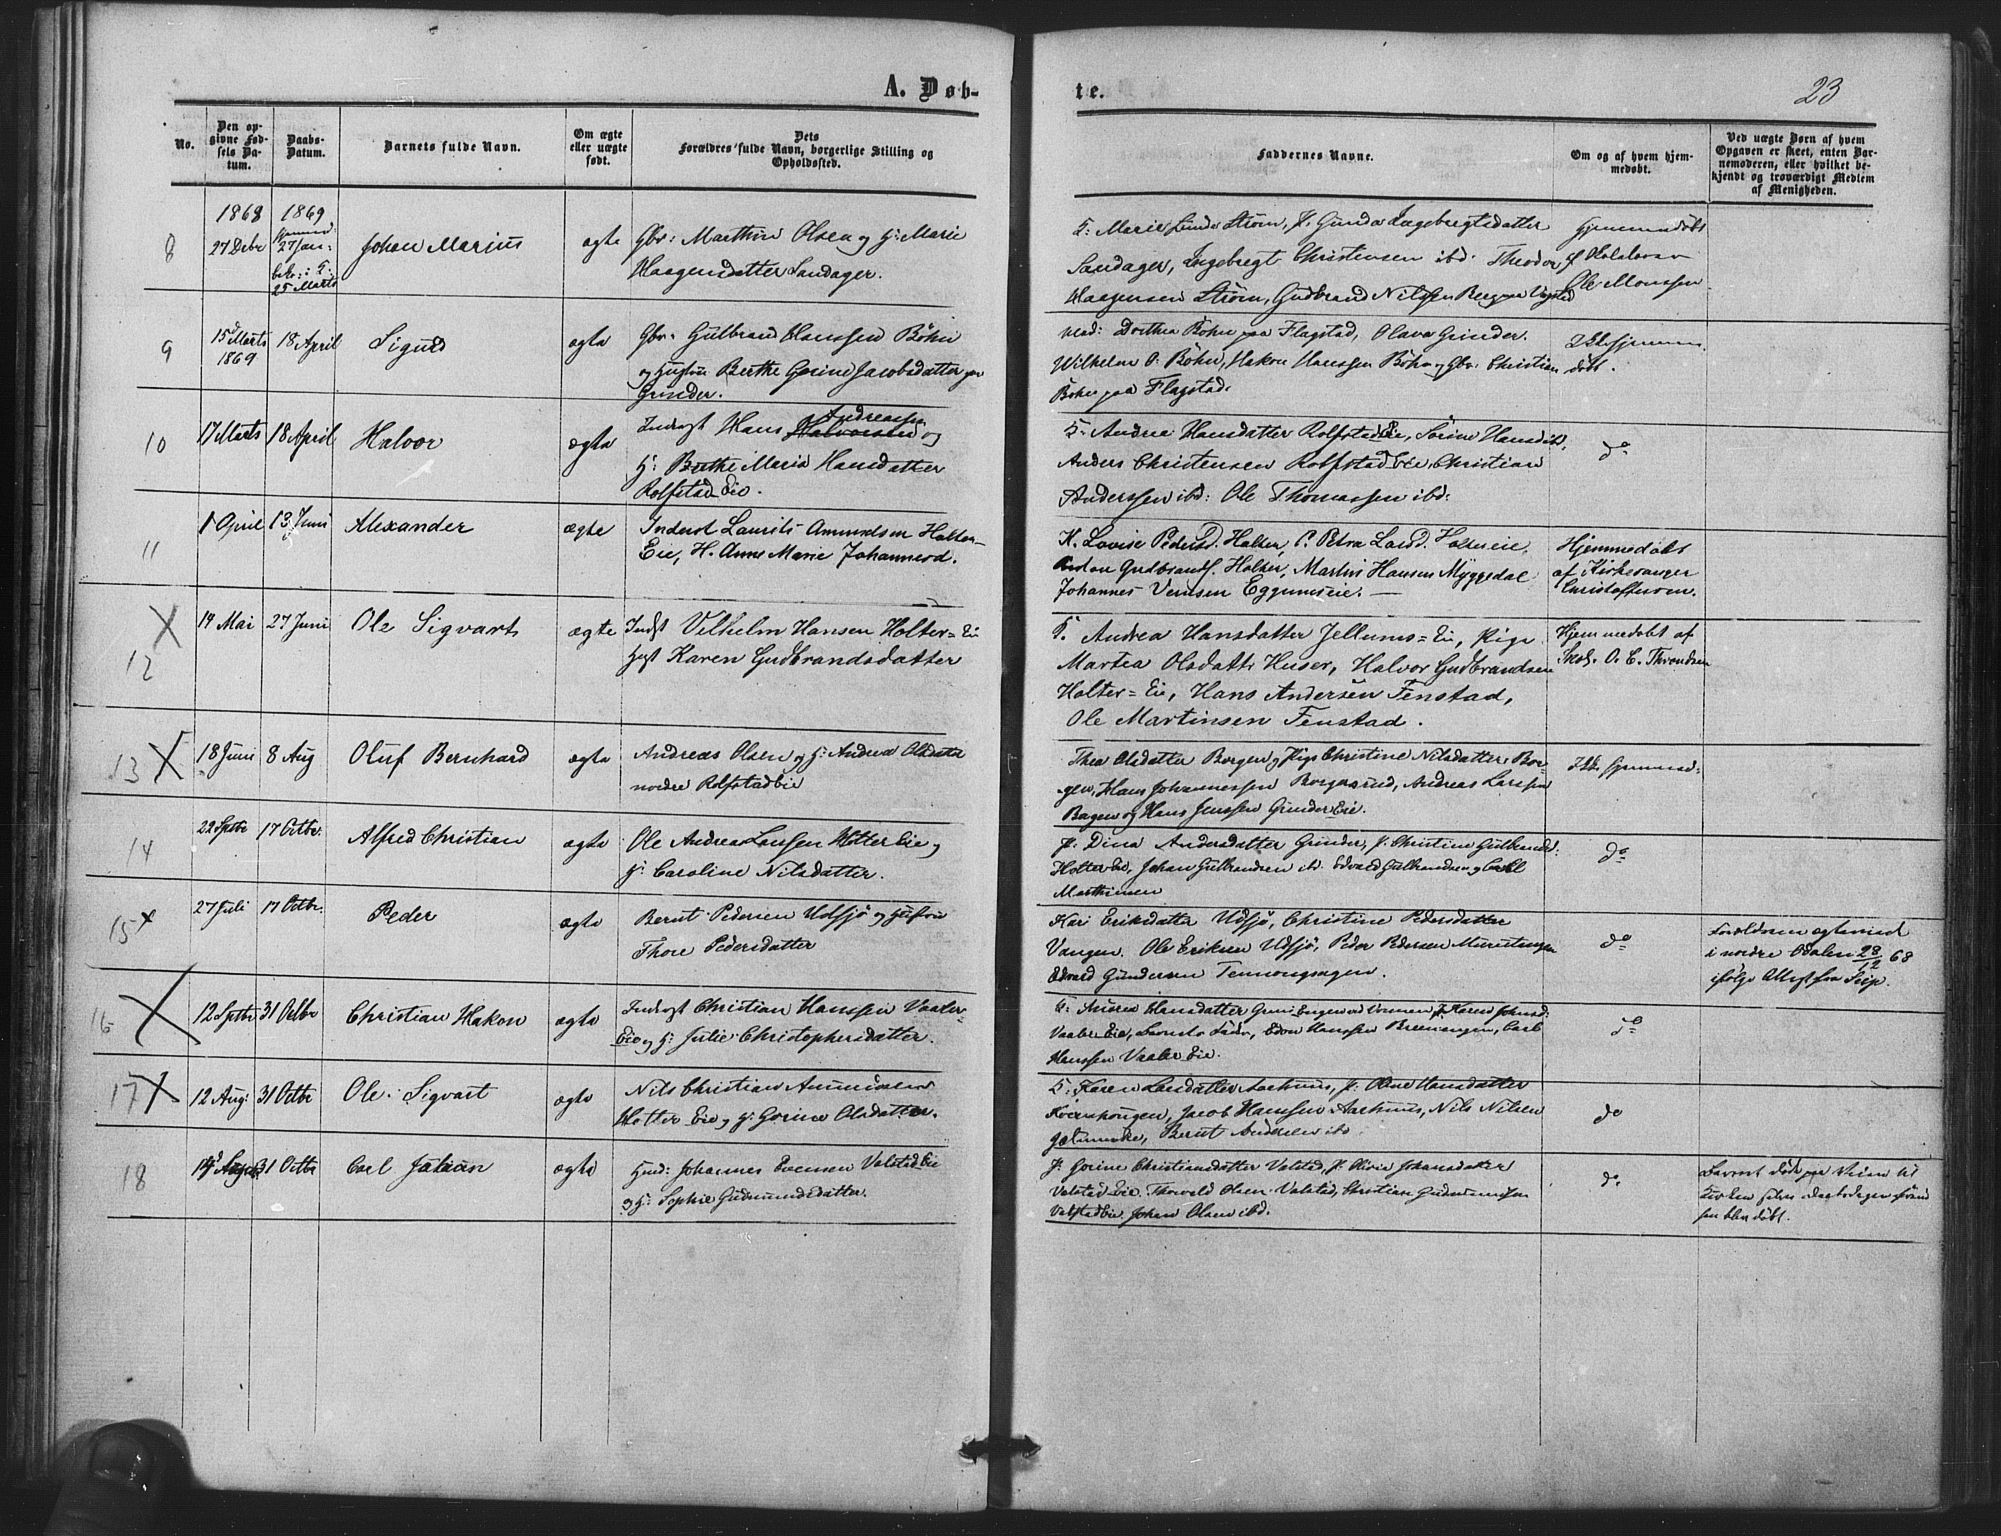 A. Døb-
te.
23
No.
Den op-
givne Fød-
sels Da-
tum.
Daabs-
Datum.
Barnets fulde Navn.
Om ægte
eller uægte
født.
Dets
Forældres fulde Navn, borgerlige Stilling og
Opholdssted.
Faddernes Navne.
Om og af hvem hjem-
medøbt.
Ved uægte Børn af hvem
Opgaven er skeet, enten Bar-
nemoderen, eller hvilket be-
kjendt og troværdigt Medlem
af Menigheden.
8
1868
27 Debr
1869
27 Jan:
25 Marts
Johan Marius
ægte
Gbr: Marthin Olsen og H: Marie
Haagensdatter Sandager.
G: Marie Strøm, P. Gunda Ingebregtsdatter
Sandager, Ingebregt Christensen ibd. Theodor
Haagensen Strøm, Gudbrand Nilssen
Hjemmedøbt
af
Ole Monssen
9
15 Marts
1869
18 April
Sigurd
ægte
Gbr: Gulbrand Hanssen Bøhn
og Hustru Berthe Gorine Jacobsdatter paa
Grinder.
Mad: Dorthea Bøhn paa Flagstad, Olava Grinder.
Wilhelm O. Bøhn, Hakon Hanssen Bøhn og Gbr. Christian
Bøhn paa Flagstad.
Ikke hjemme-
døbt.
10
17 Marts
18 April
Halvor
ægte
Inderst Hans Andreassen og
H: Berthe Maria Hansdatter
Rolfstad Eie.
G. Andrea Hansdatter Rolfstad Eie, Sørine Hansdt.
Anders Christensen Rolfstad Eie, Christian
Anderssen ibd: Ole Thomassen ibd:
do
11
1 April
13 Juni
Alexander
ægte
Inderst Laurits Amundsen Holter-
Eie, H. Anne Marie Johannesd.
K. Lovise Pedersd. Holter, P. Petra Larsd. Holtereie,
Anton Gudbrands. Holter, Martin Hansen Myggedal
Johannes Versen Eggumseie. —
Hjemmedøbt
af Kirkesanger
Christoffersen.
12
19 Mai
27 Juni
Ole Sigvart
ægte
Indst Vilhelm Hansen Holter=Eie
Hust Karen Gudbrandsdatter
G. Andrea Hansdatter Jellums=Eie, Pige
Martea Olsdatt. Huser, Halvor Gudbrandsen
Holter=Eie, Hans Andersen Fenstad,
Ole Martinsen Fenstad.
Hjemmedøbt af
Skol. O. C. Throndsen
13
18 Juni
8 Aug
Oluf Bernhard
ægte
Andreas Olsen og H: Andrea Olsdatter
nordre Rolfstad Eie
Thea Olsdatter Borgen, Pige Christine Nilsdatter Bor-
gen, Hans Johannessen Borgerud, Andreas Larssen
Bagen og Hans Jenssen Grinder Eie.
Ikke hjemmed-
14
22 Septbr
17 Octbr.
Alfred Christian
ægte
Ole Andreas Larssen Holter Eie og
H: Caroline Nilsdatter.
P. Dina Andersdatter Grinder, P. Christine Gulbrandsd:
Holter Eie, Johan Gulbrandsen ib. Edvard Gulbrandsen og Carl
Marthinsen
do
15
27 Juli
17 Octbr.
Peder
ægte
Bernt Pedersen Udsjø og Hustru
Thore Pedersdatter
Kari Eriksdatter Udsjø, Christine Pedersdatter
Vangen. Ole Eriksen Udsjø, Peder Pedersen
Edvard Gundersen
do
Forældrene ægteviet
i nordre Odalen 28/12 68
ifølge Attest fra
16
12 Septbr
31 Octbr
Christian Hakon
ægte
Inderst Christian Hanssen Vaaler-
Eie og H: Julie Christophersdatter.
G. Andrea Hansdatter P. Karen Johansd:
Vaaler Eie, Edvin Hanssen Carl
Hanssen Vaaler Eie.
do
17
12 Aug:
31 Octbr
Ole Sigvart
ægte
Nils Christian Amundsen
Holter Eie og H: Gorine Olsdatter.
G. Karen Larsdatter Aarhuus, P. Oline Hansdatter
Jacob Hanssen Aarhuus, Nils Nilsen
Bernt Andersen ibd
do
18
31 Octbr
Carl Julian
ægte
Hmd: Johannes Evensen Valstad Eie
og H: Sophie Gudmundsdatter.
P. Gorine Christiansdatter Valstad, P. Olivia Johansdatter
Valstad Eie. Thorvald Olsen Valstad, Christian Gudmundsen
Valstad Eie. Johan Olsen ibd.
do
Barnet døde paa Veien til
Kirken
han blev døbt.